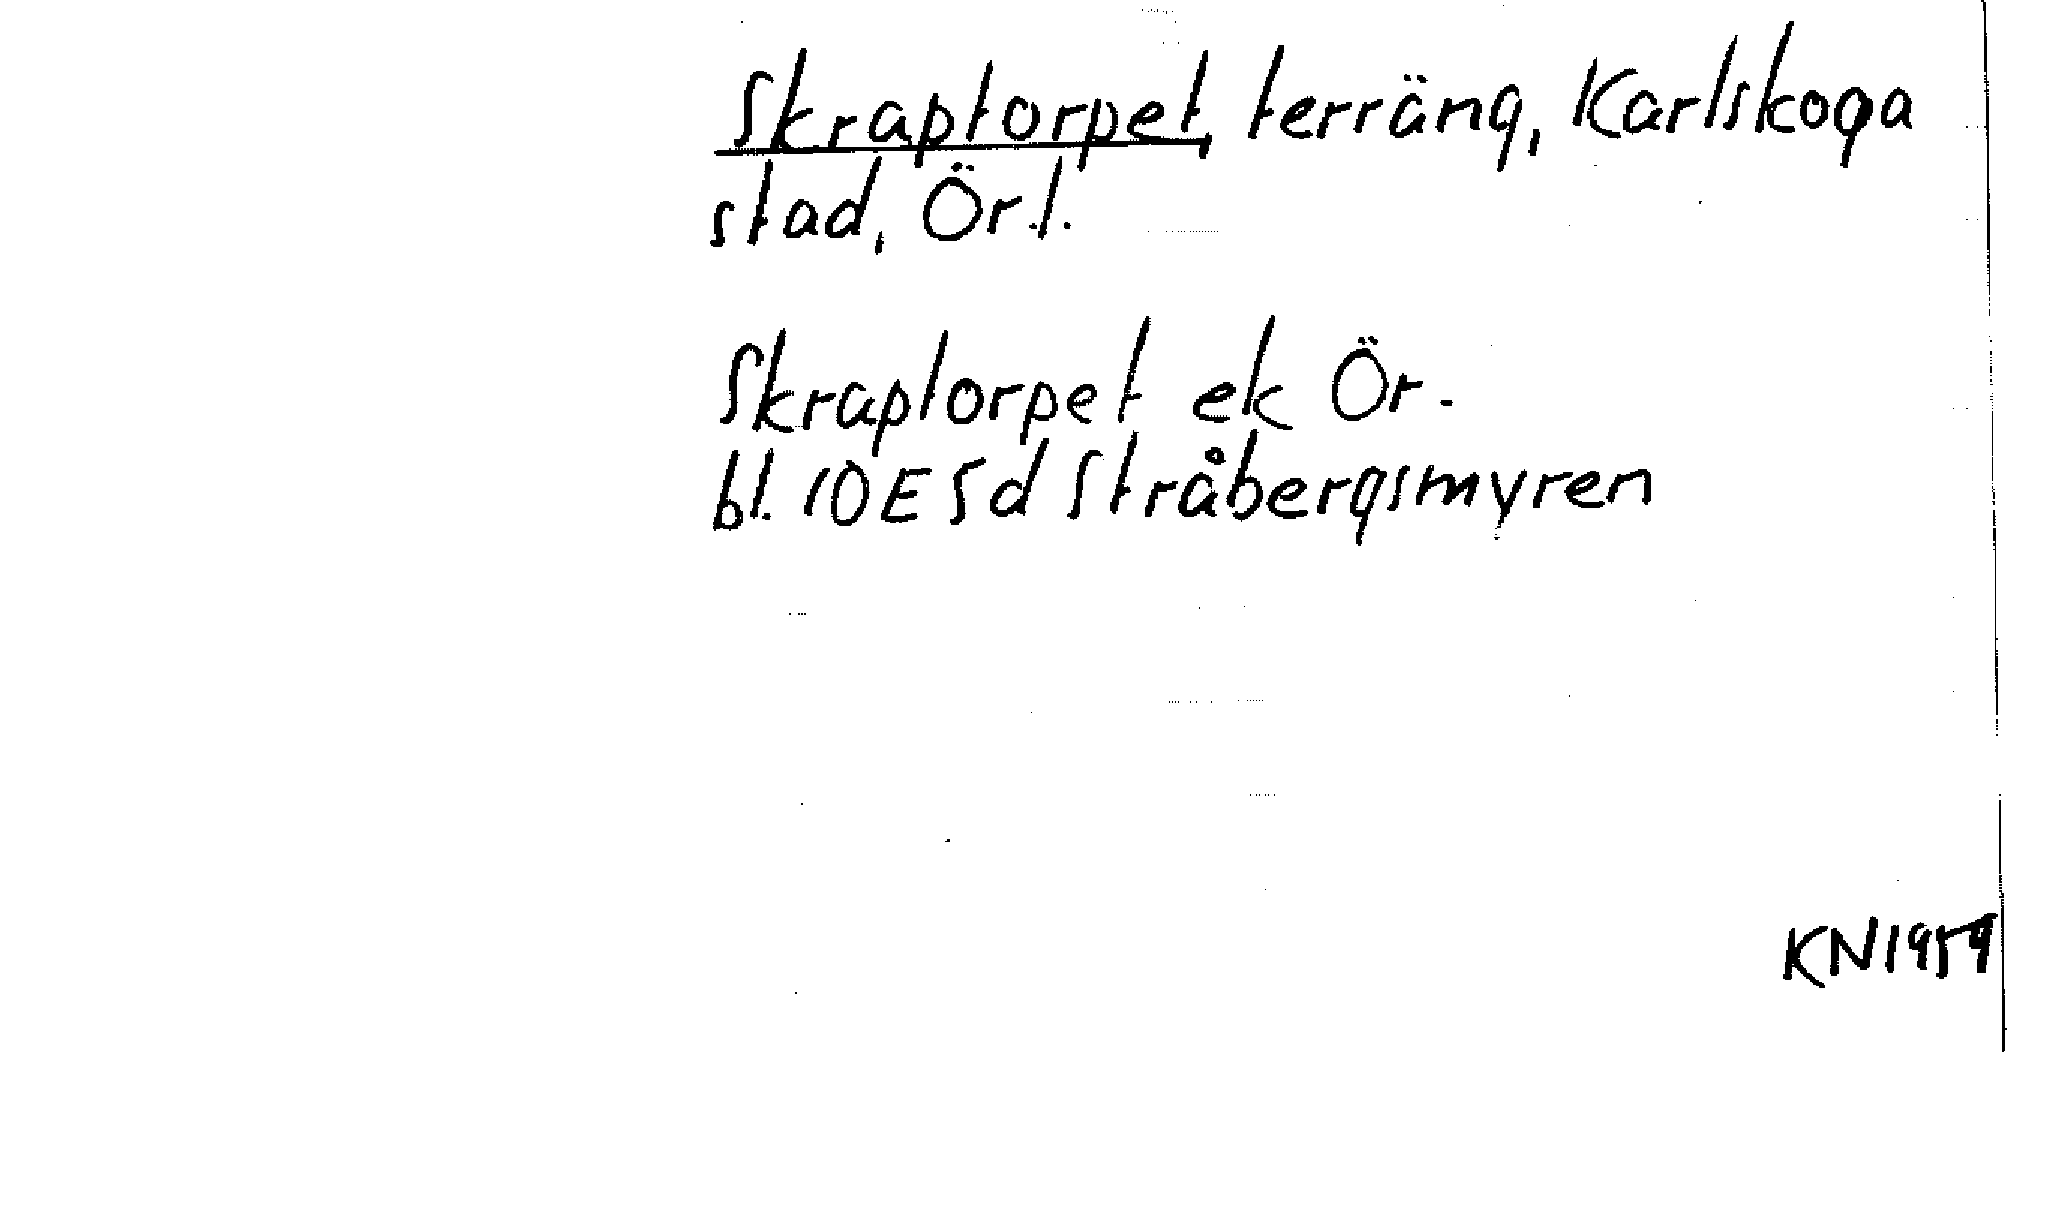 Skraptorpet, terräng, Karlskoga
stad, Ör.l.
Skraptorpet ek Ör.
bl. 10E5d Stråbergsmyren
KN1959